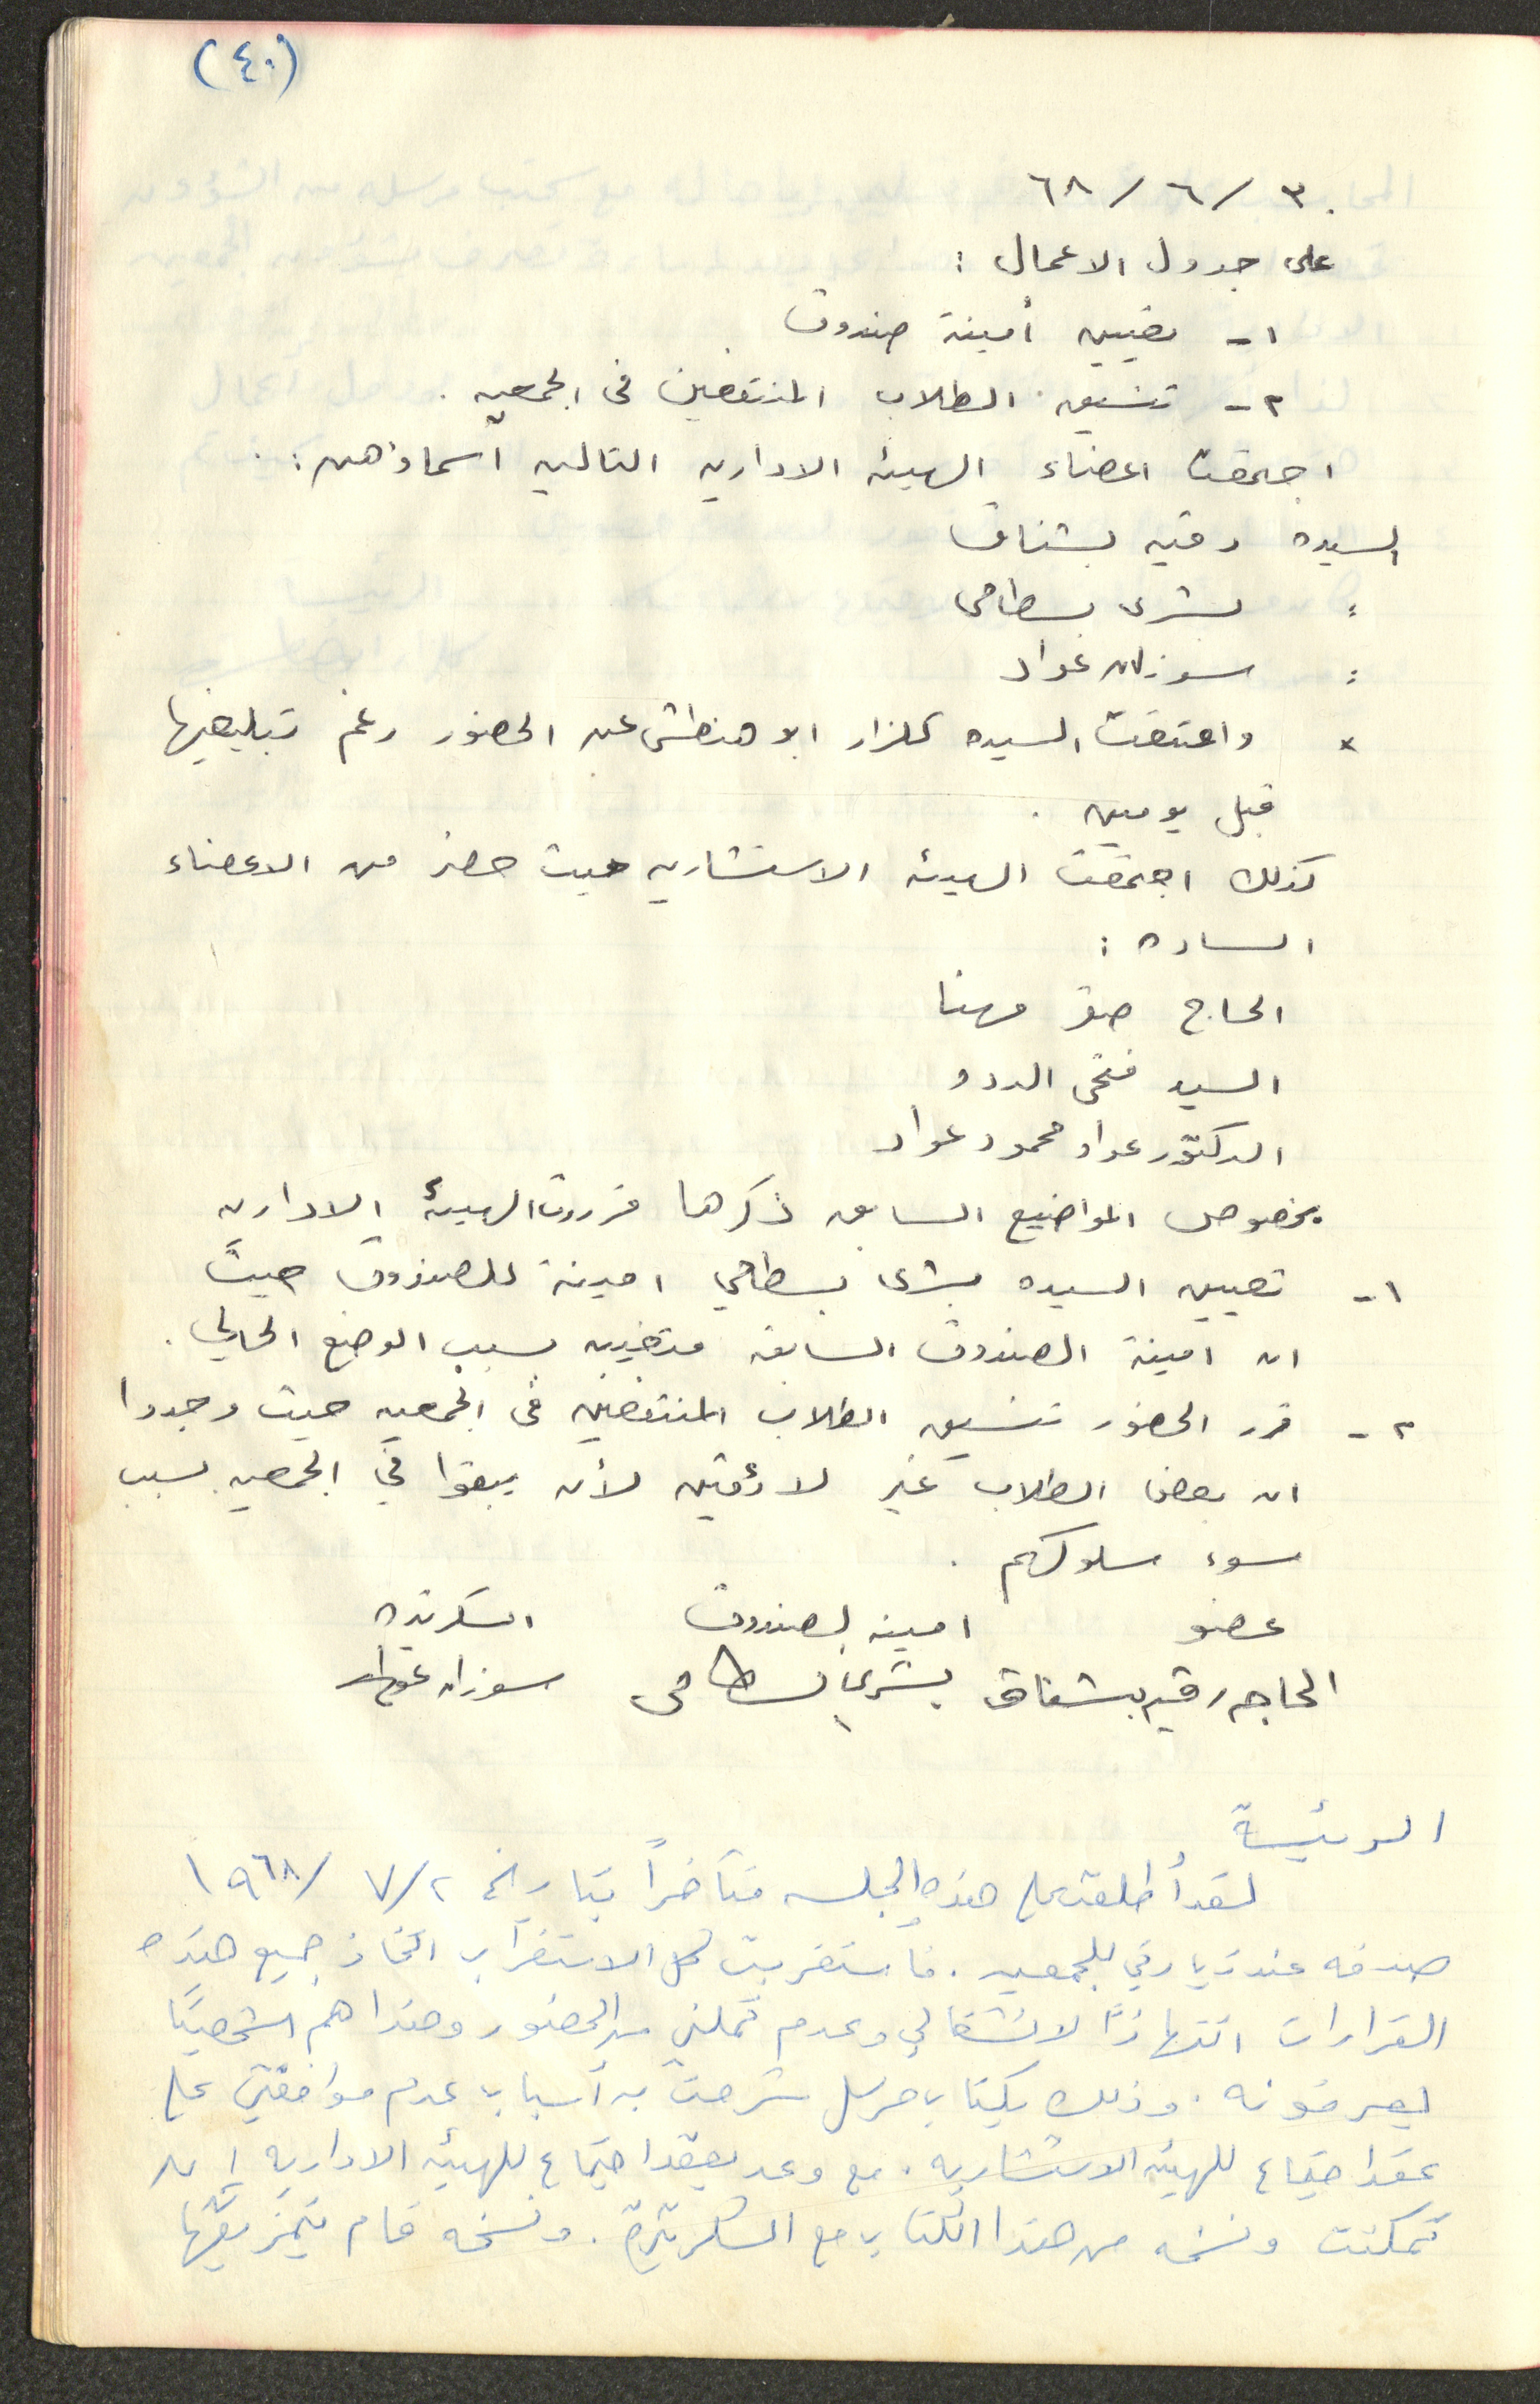 (٤٠)
٣٠/٦/٦٨
على جدول الاعمال :
١- تعيين أمينة صندوق
٢- تنسيق الطلاب المنتفعين في الجمعيه .
اجتمعت اعضاء الهيئه الاداريه التاليه اسماؤهن :
السيده رقيه بشناق
: بشرى بسطامي
: سوزان عواد
× وامتنعت السيده كلزار ابو هنطش عن الحضور رغم تبليغها
قبل يومين .
كذلك اجتمعت الهيئه الاستشاريه حيث حضر من الاعضاء
الساده :
الحاج صقر مهنا
السيد فتحي الددو
الدكتور عواد محمود عواد
بخصوص المواضيع السابق ذكرها قررت الهيئه الاداريه
١- تعيين السيده بشرى بسطامي امينة للصندوق حيث
ان امينة الصندوق السابقه متغيبه بسبب الوضع الحالي .
٢- قرر الحضور تنسيق الطلاب المنتفعين في الجمعيه حيث وجدوا
ان بعض الطلاب غير لائقين لأن يبقوا في الجمعيه بسبب
سوء سلوكهم .
عضو امينه لصندوق السكرتيره
الحاجه رقيه بشناق بشرى بسطامي سوزان عواد
الرئيسة
لقد أطلعت على هذه الجلسه متأخراً بتاريخ ٢/٧/١٩٦٨
صدفه عند زيارتي للجمعيه . فاستغربت كل الاستغراب اتخاذ جميع هذه
القرارات انتهازاً لانشغالي وعدم تمكني من الحضور وهذا هم شخصيًا
يعرفونه . وذلك بكتاب مرسل شرحت به أسباب عدم موافقتي على
عقد اجتماع للهيئه الاستشاريه . مع وعد بعقد اجتماع للهيئه الاداريه ان
تمكنت ونسخه من هذا الكتاب مع السكرتيرة . ونسخه قام بتمزيقها